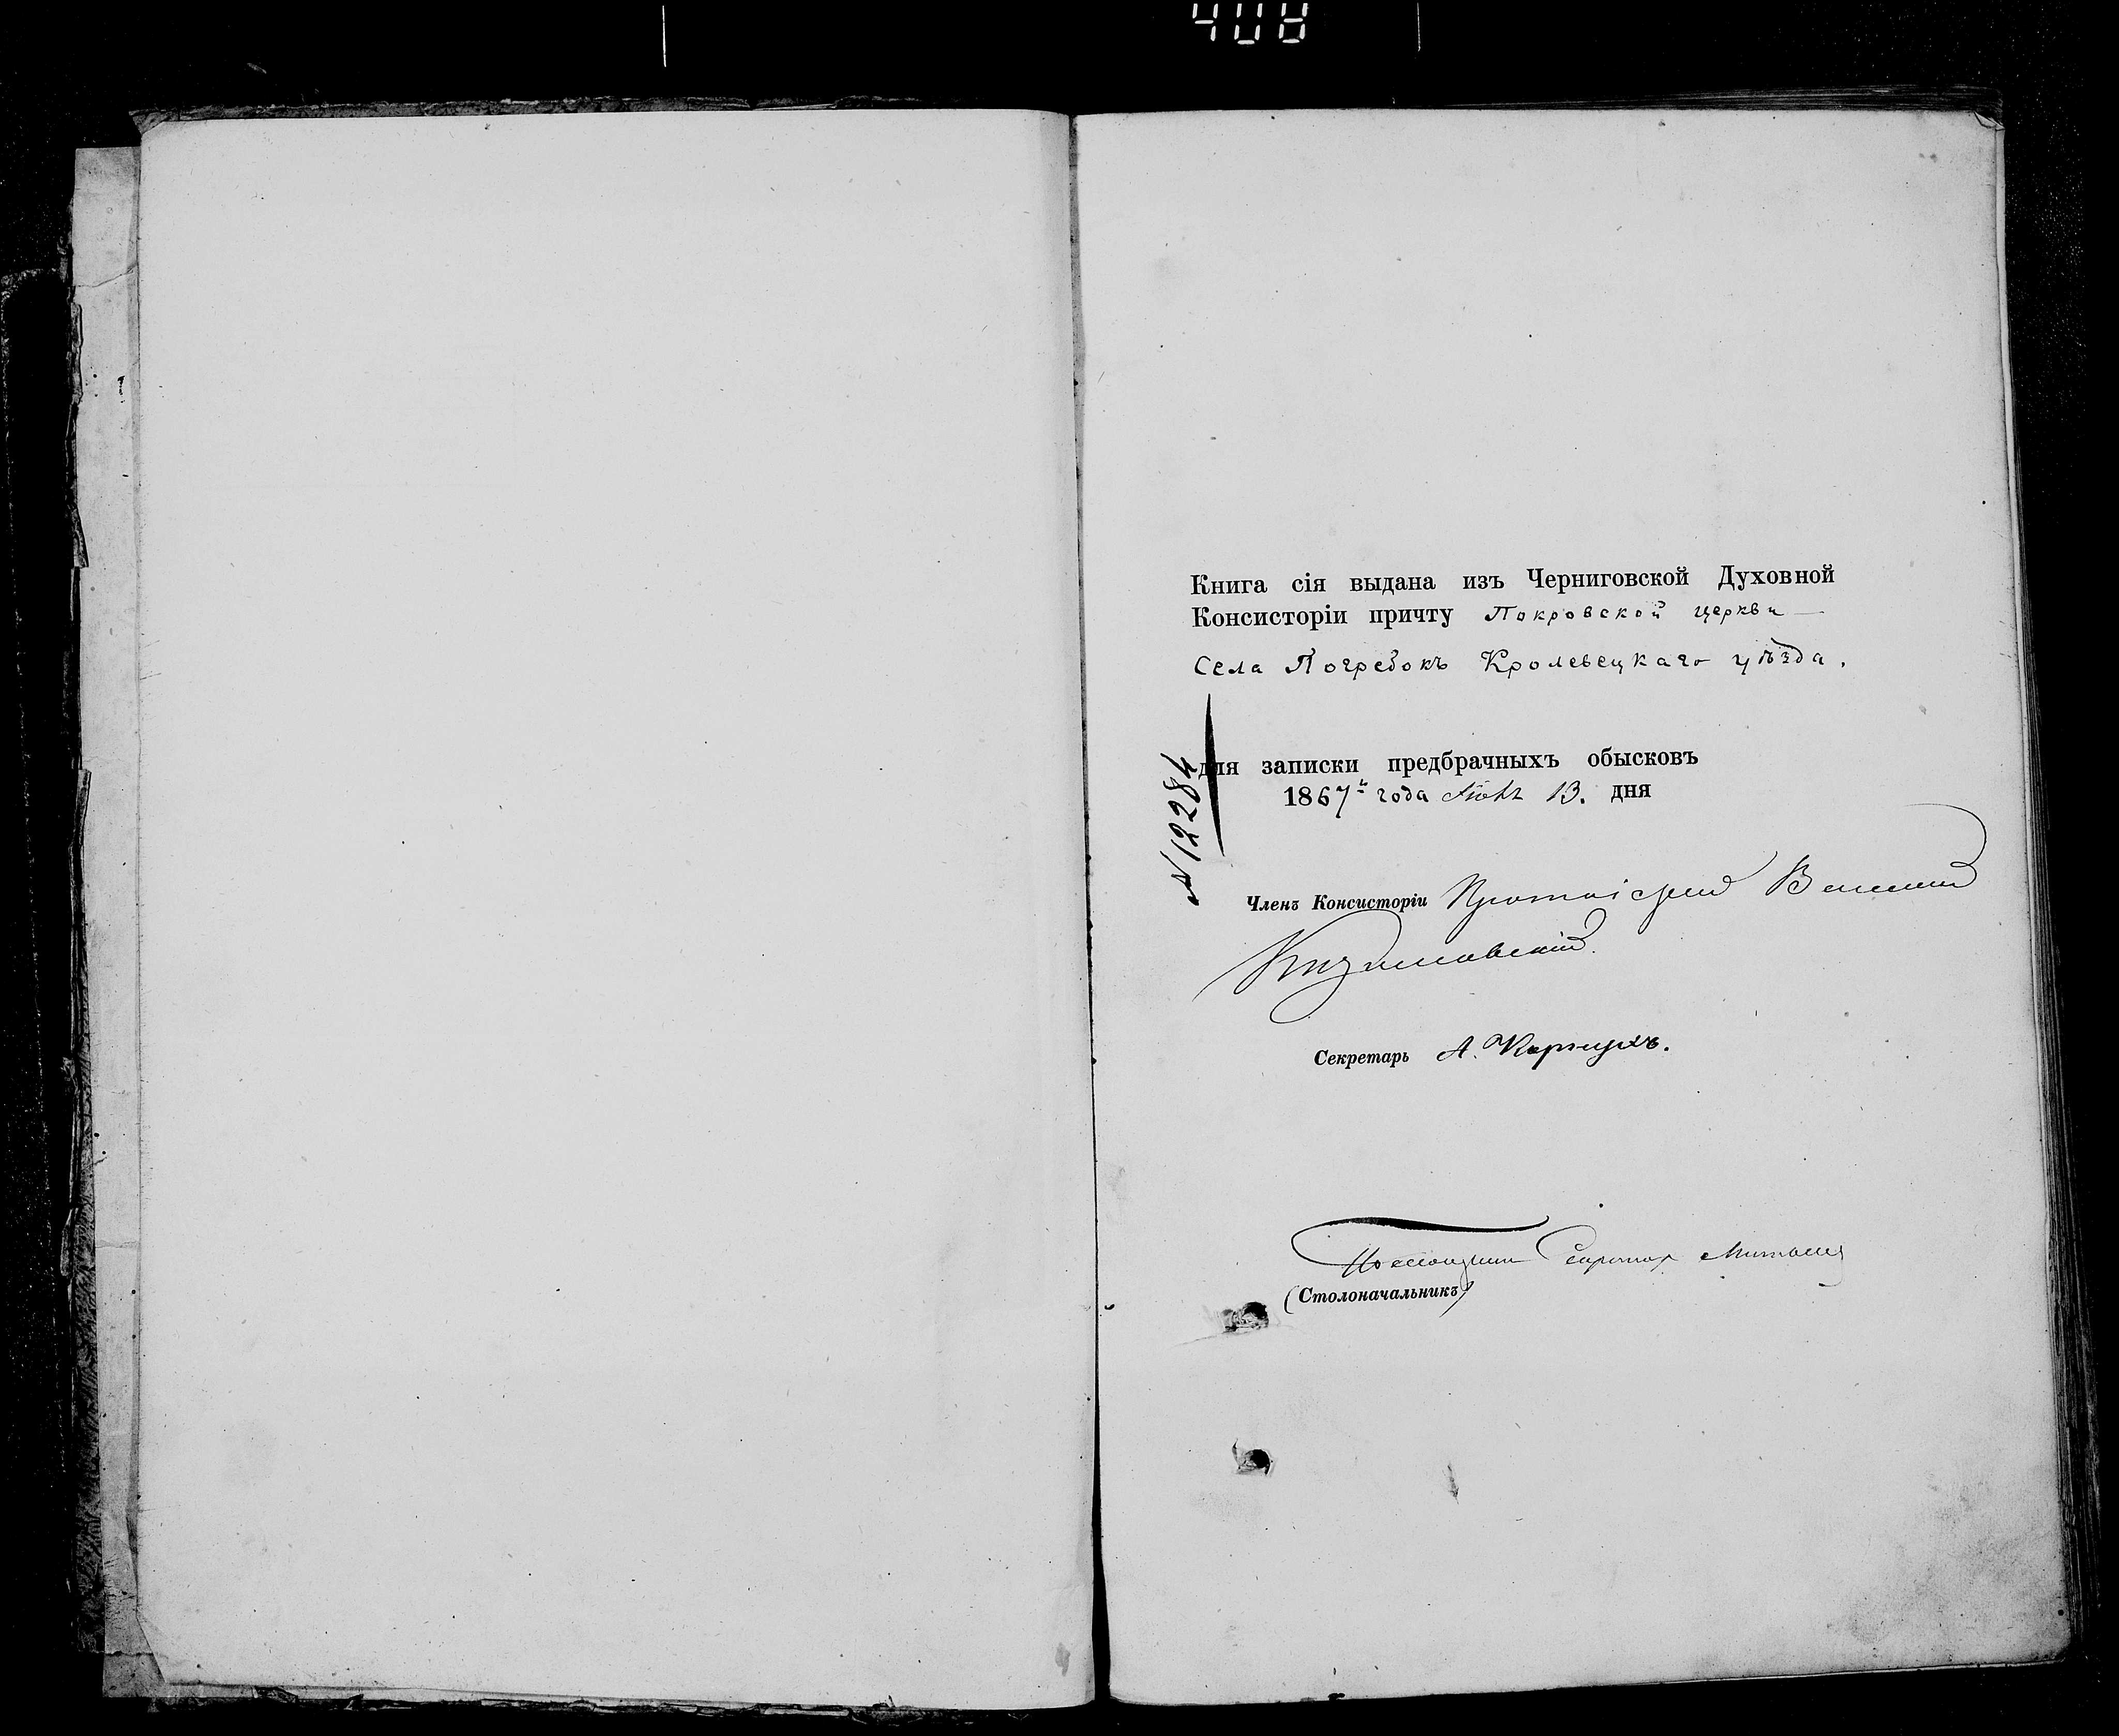 408
Книга сія выдана изъ Черниговской Духовной
Консисторіи причту Покровской церкви
села Погребокъ Кролевецкаго уѣзда.
для записки предбрачныхъ обысковъ
1867 года 13. дня
№ 12284
Членъ Консисторіи Протоіерей
Секретарь А.
Секретарь
(Столоначальникъ)